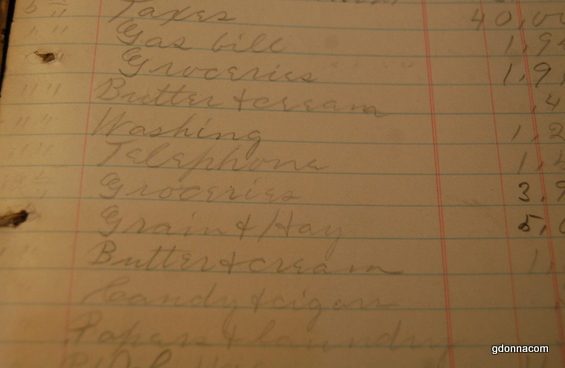 Taxes 40,00
Gas bill 1,9
Groceries " " " 1,9
" " Butter & cream ,4
" " Washing 1,2
Telephone 1,
Groceries 3,9
Grain & Hay 5,
Butter & cream 1,
Candy & cigars
Papers & laundry
gdonnacom